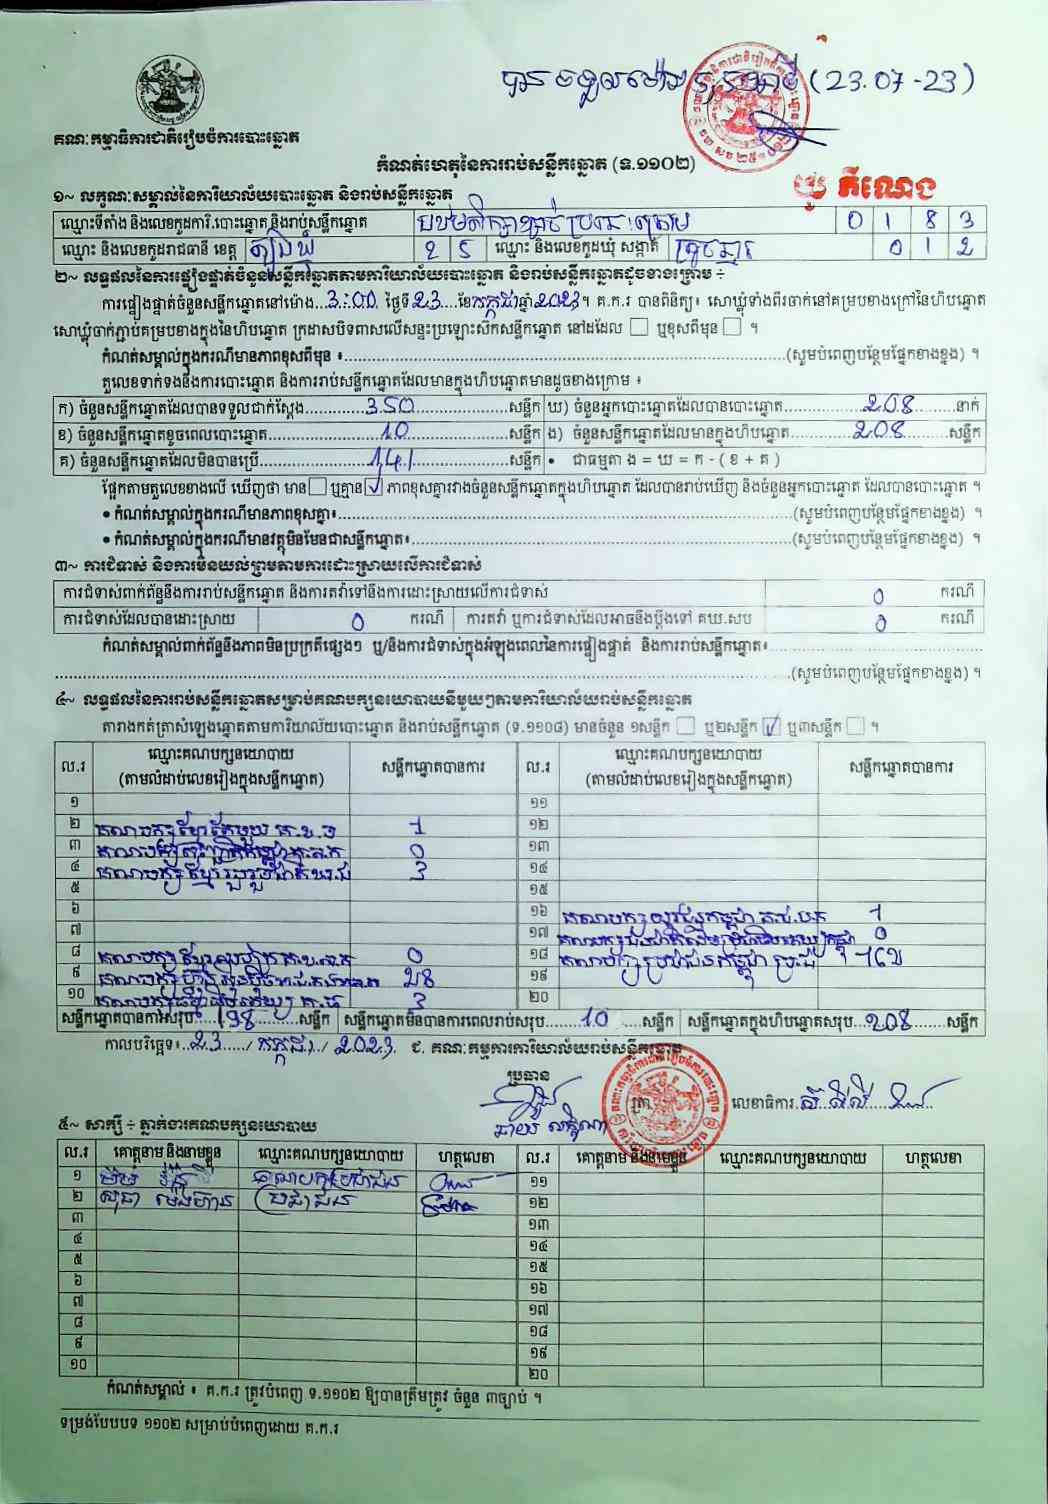 បានចូលម៉ោង (23.07-23)
គណៈកម្មាធិការជាតិរៀបចំការបោះឆ្នោត
កំណត់ហេតុនៃការរាប់សន្លឹកឆ្នោត (ទ.១១០២)
១~ លក្ខណៈសម្គាល់នៃការិយាល័យបោះឆ្នោត និងរាប់សន្លឹកឆ្នោត
តំណែង
ឈ្មោះទីតាំង និងលេខកូដការិ.បោះឆ្នោត និងរាប់សន្លឹកឆ្នោត 0 1 8 3
ឈ្មោះ និងលេខកូដរាជធានី ខេត្ត ត្បូងឃ្មុំ 2 5 ឈ្មោះ និងលេខកូដឃុំ សង្កាត់ 0 1 2
២~ លទ្ធផលនៃការផ្ទៀងផ្ទាត់ចំនួនសន្លឹកឆ្នោតតាមការិយាល័យបោះឆ្នោត និងរាប់សន្លឹកឆ្នោតដូចខាងក្រោម ÷
ការផ្ទៀងផ្ទាត់ចំនួនសន្លឹកឆ្នោតនៅម៉ោង...3:00 ថ្ងៃទី 23 ខែ កក្កដា ឆ្នាំ 2023។ គ.ក.រ បានពិនិត្យ៖ សោឃ្លុំទាំងពីរចាក់នៅគម្របខាងក្រៅនៃហិបឆ្នោត
សោឃ្លុំចាក់ភ្ជាប់គម្របខាងក្នុងនៃហិបឆ្នោត ក្រដាសបិទពាសលើសន្ទះប្រឡោះសឹកសន្លឹកឆ្នោត នៅដដែល ឬខុសពីមុន ។
កំណត់សម្គាល់ក្នុងករណីមានភាពខុសពីមុន ៖ (សូមបំពេញបន្ថែមផ្នែកខាងខ្នង) ។
តួលេខទាក់ទងនឹងការបោះឆ្នោត និងការរាប់សន្លឹកឆ្នោតដែលមានក្នុងហិបឆ្នោតមានដូចខាងក្រោម ៖
ក) ចំនួនសន្លឹកឆ្នោតដែលបានទទួលជាក់ស្តែង 350 សន្លឹក ឃ) ចំនួនអ្នកបោះឆ្នោតដែលបានបោះឆ្នោត 208 នាក់
ខ) ចំនួនសន្លឹកឆ្នោតខូចពេលបោះឆ្នោត សន្លឹក ង) ចំនួនសន្លឹកឆ្នោតដែលមានក្នុងហិបឆ្នោត 208 សន្លឹក
គ) ចំនួនសន្លឹកឆ្នោតដែលមិនបានប្រើ 141 សន្លឹក • ជាធម្មតា ង = ឃ = ក - ( ខ + គ )
ផ្អែកតាមតួលេខខាងលើ ឃើញថា មាន ឬគ្មាន ✓ ភាពខុសគ្នារវាងចំនួនសន្លឹកឆ្នោតក្នុងហិបឆ្នោត ដែលបានរាប់ឃើញ និងចំនួនអ្នកបោះឆ្នោត ដែលបានបោះឆ្នោត ។
• កំណត់សម្គាល់ក្នុងករណីមានភាពខុសគ្នា៖ (សូមបំពេញបន្ថែមផ្នែកខាងខ្នង) ។
• កំណត់សម្គាល់ក្នុងករណីមានវត្ថុមិនមែនជាសន្លឹកឆ្នោត៖ (សូមបំពេញបន្ថែមផ្នែកខាងខ្នង) ។
៣~ ការជំទាស់ និងការមិនយល់ព្រមតាមការដោះស្រាយលើការជំទាស់
ការជំទាស់ពាក់ព័ន្ធនឹងការរាប់សន្លឹកឆ្នោត និងការតវ៉ាទៅនឹងការដោះស្រាយលើការជំទាស់ 0 ករណី
ការជំទាស់ដែលបានដោះស្រាយ 0 ករណី ការតវ៉ា ឬការជំទាស់ដែលអាចនឹងប្តឹងទៅ គឃ.សប 0 ករណី
កំណត់សម្គាល់ពាក់ព័ន្ធនឹងភាពមិនប្រក្រតីផ្សេងៗ ឬ/និងការជំទាស់ក្នុងអំឡុងពេលនៃការផ្ទៀងផ្ទាត់ និងការរាប់សន្លឹកឆ្នោត៖
(សូមបំពេញបន្ថែមផ្នែកខាងខ្នង) ។
៤~ លទ្ធផលនៃការរាប់សន្លឹកឆ្នោតសម្រាប់គណបក្សនយោបាយនីមួយៗតាមការិយាល័យរាប់សន្លឹកឆ្នោត
តារាងកត់ត្រាសំឡេងឆ្នោតតាមការិយាល័យបោះឆ្នោត និងរាប់សន្លឹកឆ្នោត (ទ.១១០៨) មានចំនួន ១សន្លឹក ឬ២សន្លឹក ✓ ឬ៣សន្លឹក ។
ល.រ ឈ្មោះគណបក្សនយោបាយ សន្លឹកឆ្នោតបានការ ល.រ ឈ្មោះគណបក្សនយោបាយ សន្លឹកឆ្នោតបានការ
(តាមលំដាប់លេខរៀងក្នុងសន្លឹកឆ្នោត) (តាមលំដាប់លេខរៀងក្នុងសន្លឹកឆ្នោត)
១ ១១
២ គណបក្សខ្មែរតែមួយ 1 ១២
៣ 0 ១៣
៤ គណបក្សខ្មែររួបរួមជាតិ 3 ១៤
៥ ១៥
៦ ១៦ គណបក្សយុវជនកម្ពុជា 1
៧ ១៧ 0
៨ 0 ១៨ គណបក្សប្រជាជនកម្ពុជា
៩ គណបក្សហ៊្វុនស៊ិនប៉ិច 28 ១៩
១០ 3 ២០
សន្លឹកឆ្នោតបានការសរុប 198 សន្លឹក សន្លឹកឆ្នោតមិនបានការពេលរាប់សរុប 10 សន្លឹក សន្លឹកឆ្នោតក្នុងហិបឆ្នោតសរុប 208 សន្លឹក
កាលបរិច្ឆេទ៖ 23 / កក្កដា / 2023 ជ. គណៈកម្មការការិយាល័យរាប់សន្លឹកឆ្នោត
ប្រធាន
លេខាធិការ
៥~ សាក្សី ÷ ភ្នាក់ងារគណបក្សនយោបាយ
ល.រ គោត្តនាម និងនាមខ្លួន ឈ្មោះគណបក្សនយោបាយ ហត្ថលេខា ល.រ គោត្តនាម និងនាមខ្លួន ឈ្មោះគណបក្សនយោបាយ ហត្ថលេខា
១ គណបក្សប្រជាជន ១១
២ ប្រជាជន ១២
៣ ១៣
៤ ១៤
៥ ១៥
៦ ១៦
៧ ១៧
៨ ១៨
៩ ១៩
១០ ២០
កំណត់សម្គាល់ ៖ គ.ក.រ ត្រូវបំពេញ ទ.១១០២ ឱ្យបានត្រឹមត្រូវ ចំនួន ៣ច្បាប់ ។
ទម្រង់បែបបទ ១១០២ សម្រាប់បំពេញដោយ គ.ក.រ